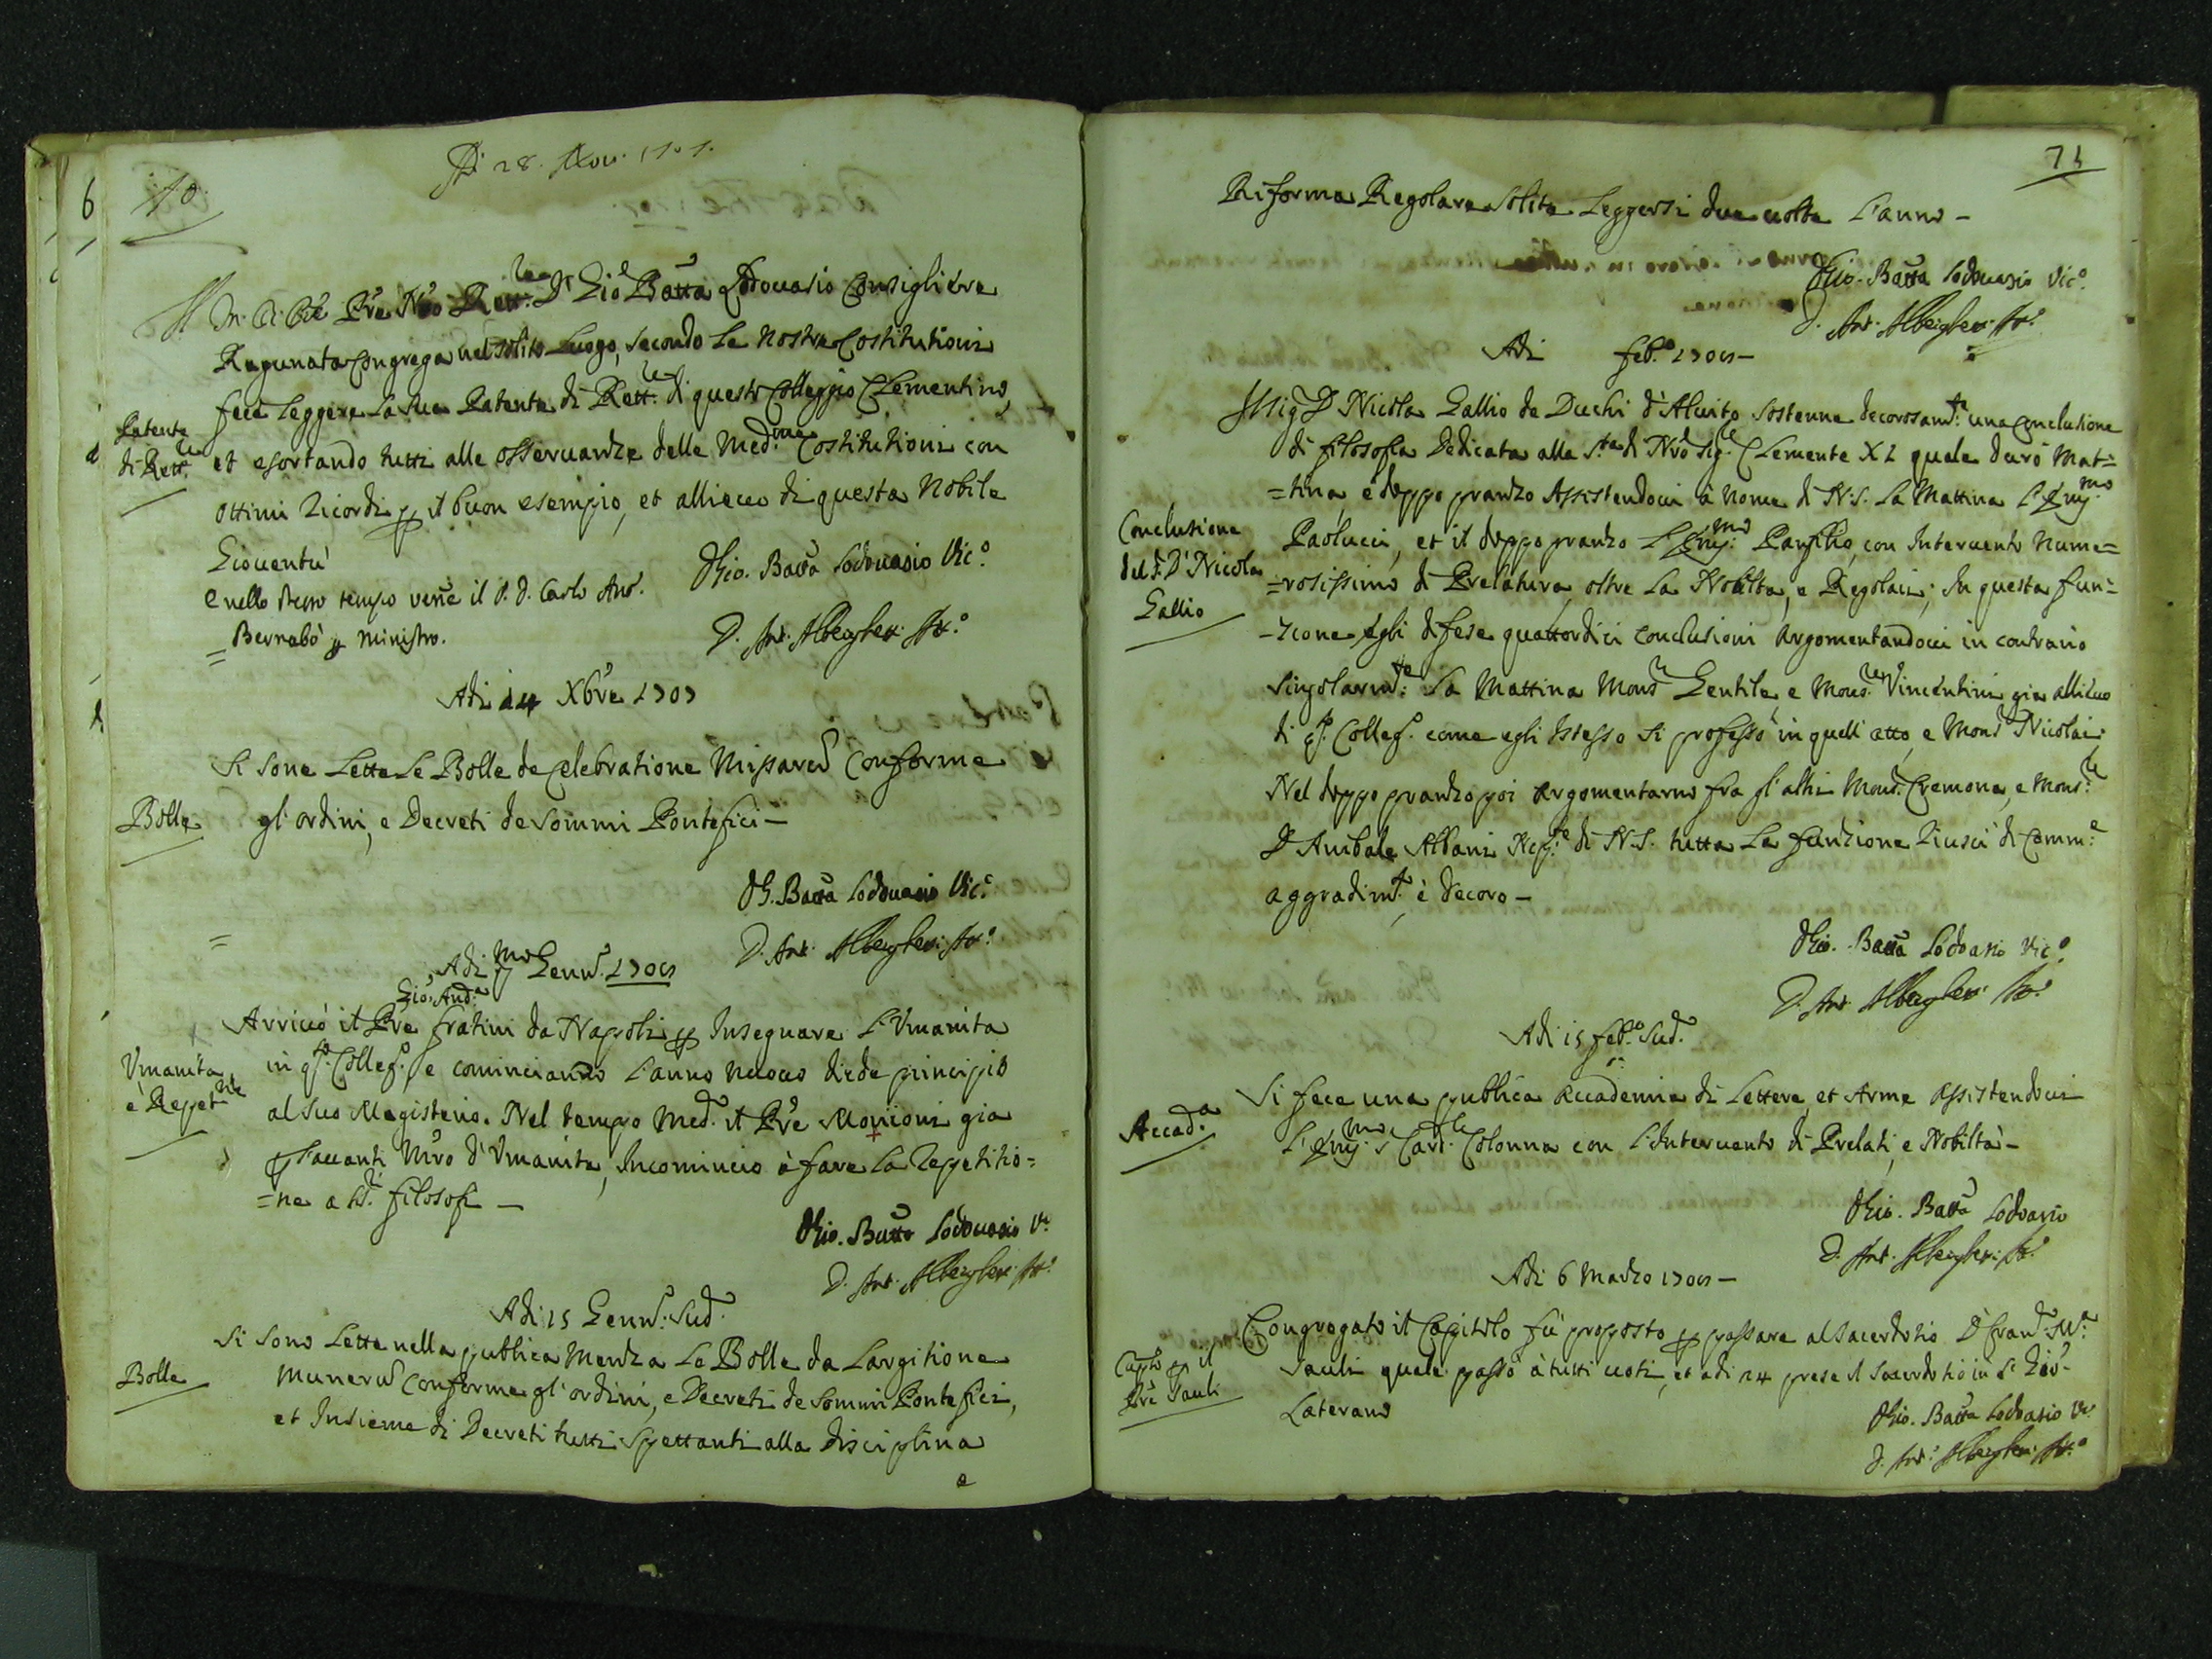 70
Adi 28. Nov. 1707.
Il M. R. Pre Nro Rett.re D. Gio Batta Lodouasio Consigliere
Ragunata Congrega nel solito Luogo, secondo le nostre Costitutioni
fece leggere la sua Patente di Rett.re di questo Colleggio Clementino,
Patente
di Rett.re
et esortando tutti alle osseruanze delle Med.me Costitutioni con
ottimi ricordi p il buon esempio, et allieuo di questa Nobile
Giouentù
D Gio. Batta Lodouasio Vic.o
e nello stesso tempo venne il P. D. Carlo Ant.
Bernabò p Ministro.
D. Ant. Alberghetti
Adi 14 Xbre 1707
Si sono Lette le Bolle de Celebratione Missarū Conforme
Bolle
gl'ordini, e Decreti de Sommi Pontefici -
D G. Batta Lodouasio Vic.o
D. Ant. Alberghetti
Adi p.mo Genn.o 1708
Gio. And.a
Arriuò il Pre Fratini da Napoli p Insegnare l'Vmanita
Vmanita,
è Repet.ne
in q.to Colleg.o, e cominciando l'anno nuouo diede principio
al suo Magisterio. Nel tempo Med.o il Pre Morioni gia
p l'auanti Mro d'Vmanita, Incominciò à fare la repetitio=
=ne a ss.ri filosofi -
D Gio. Batta Lodouasio V.
D. Ant. Alberghetti
Adi 15 Genn.o Sud.o
Si sono Lette nella publica Menza le Bolle de Largitione
Bolle
Munerū Conforme gl'ordini, e Decreti de Sommi Pontefici,
et Insieme di Decreti tutti spettanti alla disciplina
e
71
Riforma Regolare solite Leggersi due uolte l'anno -
D Gio. Batta Lodouasio Vic.o
D. Ant. Alberghetti
Adi feb.o 1708 -
Il Sig D Nicola Gallio de Duchi d'Aluito sostenne decorosam.te una Conclusione
di filosofia Dedicata alla S.ta di Nro Sig.re Clemente XI quale durò Mat=
=tina, e doppo pranzo Assistendoui à nome di N. S. la Mattina l'Em.mo
Conclusione
del S. D. Nicola
Gallio
Paolucci, et il doppo pranzo l'Em.mo Panfilio, con Interuento nume=
=rosissimo di Prelatura, oltre la Nobiltà, e Regolari; In questa fun=
=zione egli difese quattordici Conclusioni Argomentandoui in contrario
singolarm.te la Mattina Mons.r Gentile, e Mons.re Vincentini gia allieuo
di q.to Colleg.o come egli Istesso si professò in quell'atto, e Mons.r Nicolai
Nel doppo pranzo poi Argomentarno fra gl'altri Mons.r Cremona, e Mons.re
D Anibale Albani Nep.te di N. S. tutta la funzione riuscì di Comm.e
aggradim.to, è decoro -
D Gio. Batta Lodoasio Vic.o
D. Ant. Alberghetti
Adi 15 feb.o Sud.o
Si fece una publica Accademia di Lettere, et Arme Assistendoui
Accad.a
l'Em.mo S Card.le Colonna con l'Interuento di Prelati, e Nobiltà -
D Gio. Batta Lodoasio
D. Ant. Alberghetti
Adi 6 Marzo 1708 -
Congregato il Capitolo fù proposto p passare al Sacerdotio D Fran.co M.a
p il
Pre Sauli
Sauli quale passò à tutti uoti, et adi 24 prese il Sacerdotio in S. Gio.
Laterano
D Gio. Batta Lodoasio V.
D. Ant. Alberghetti